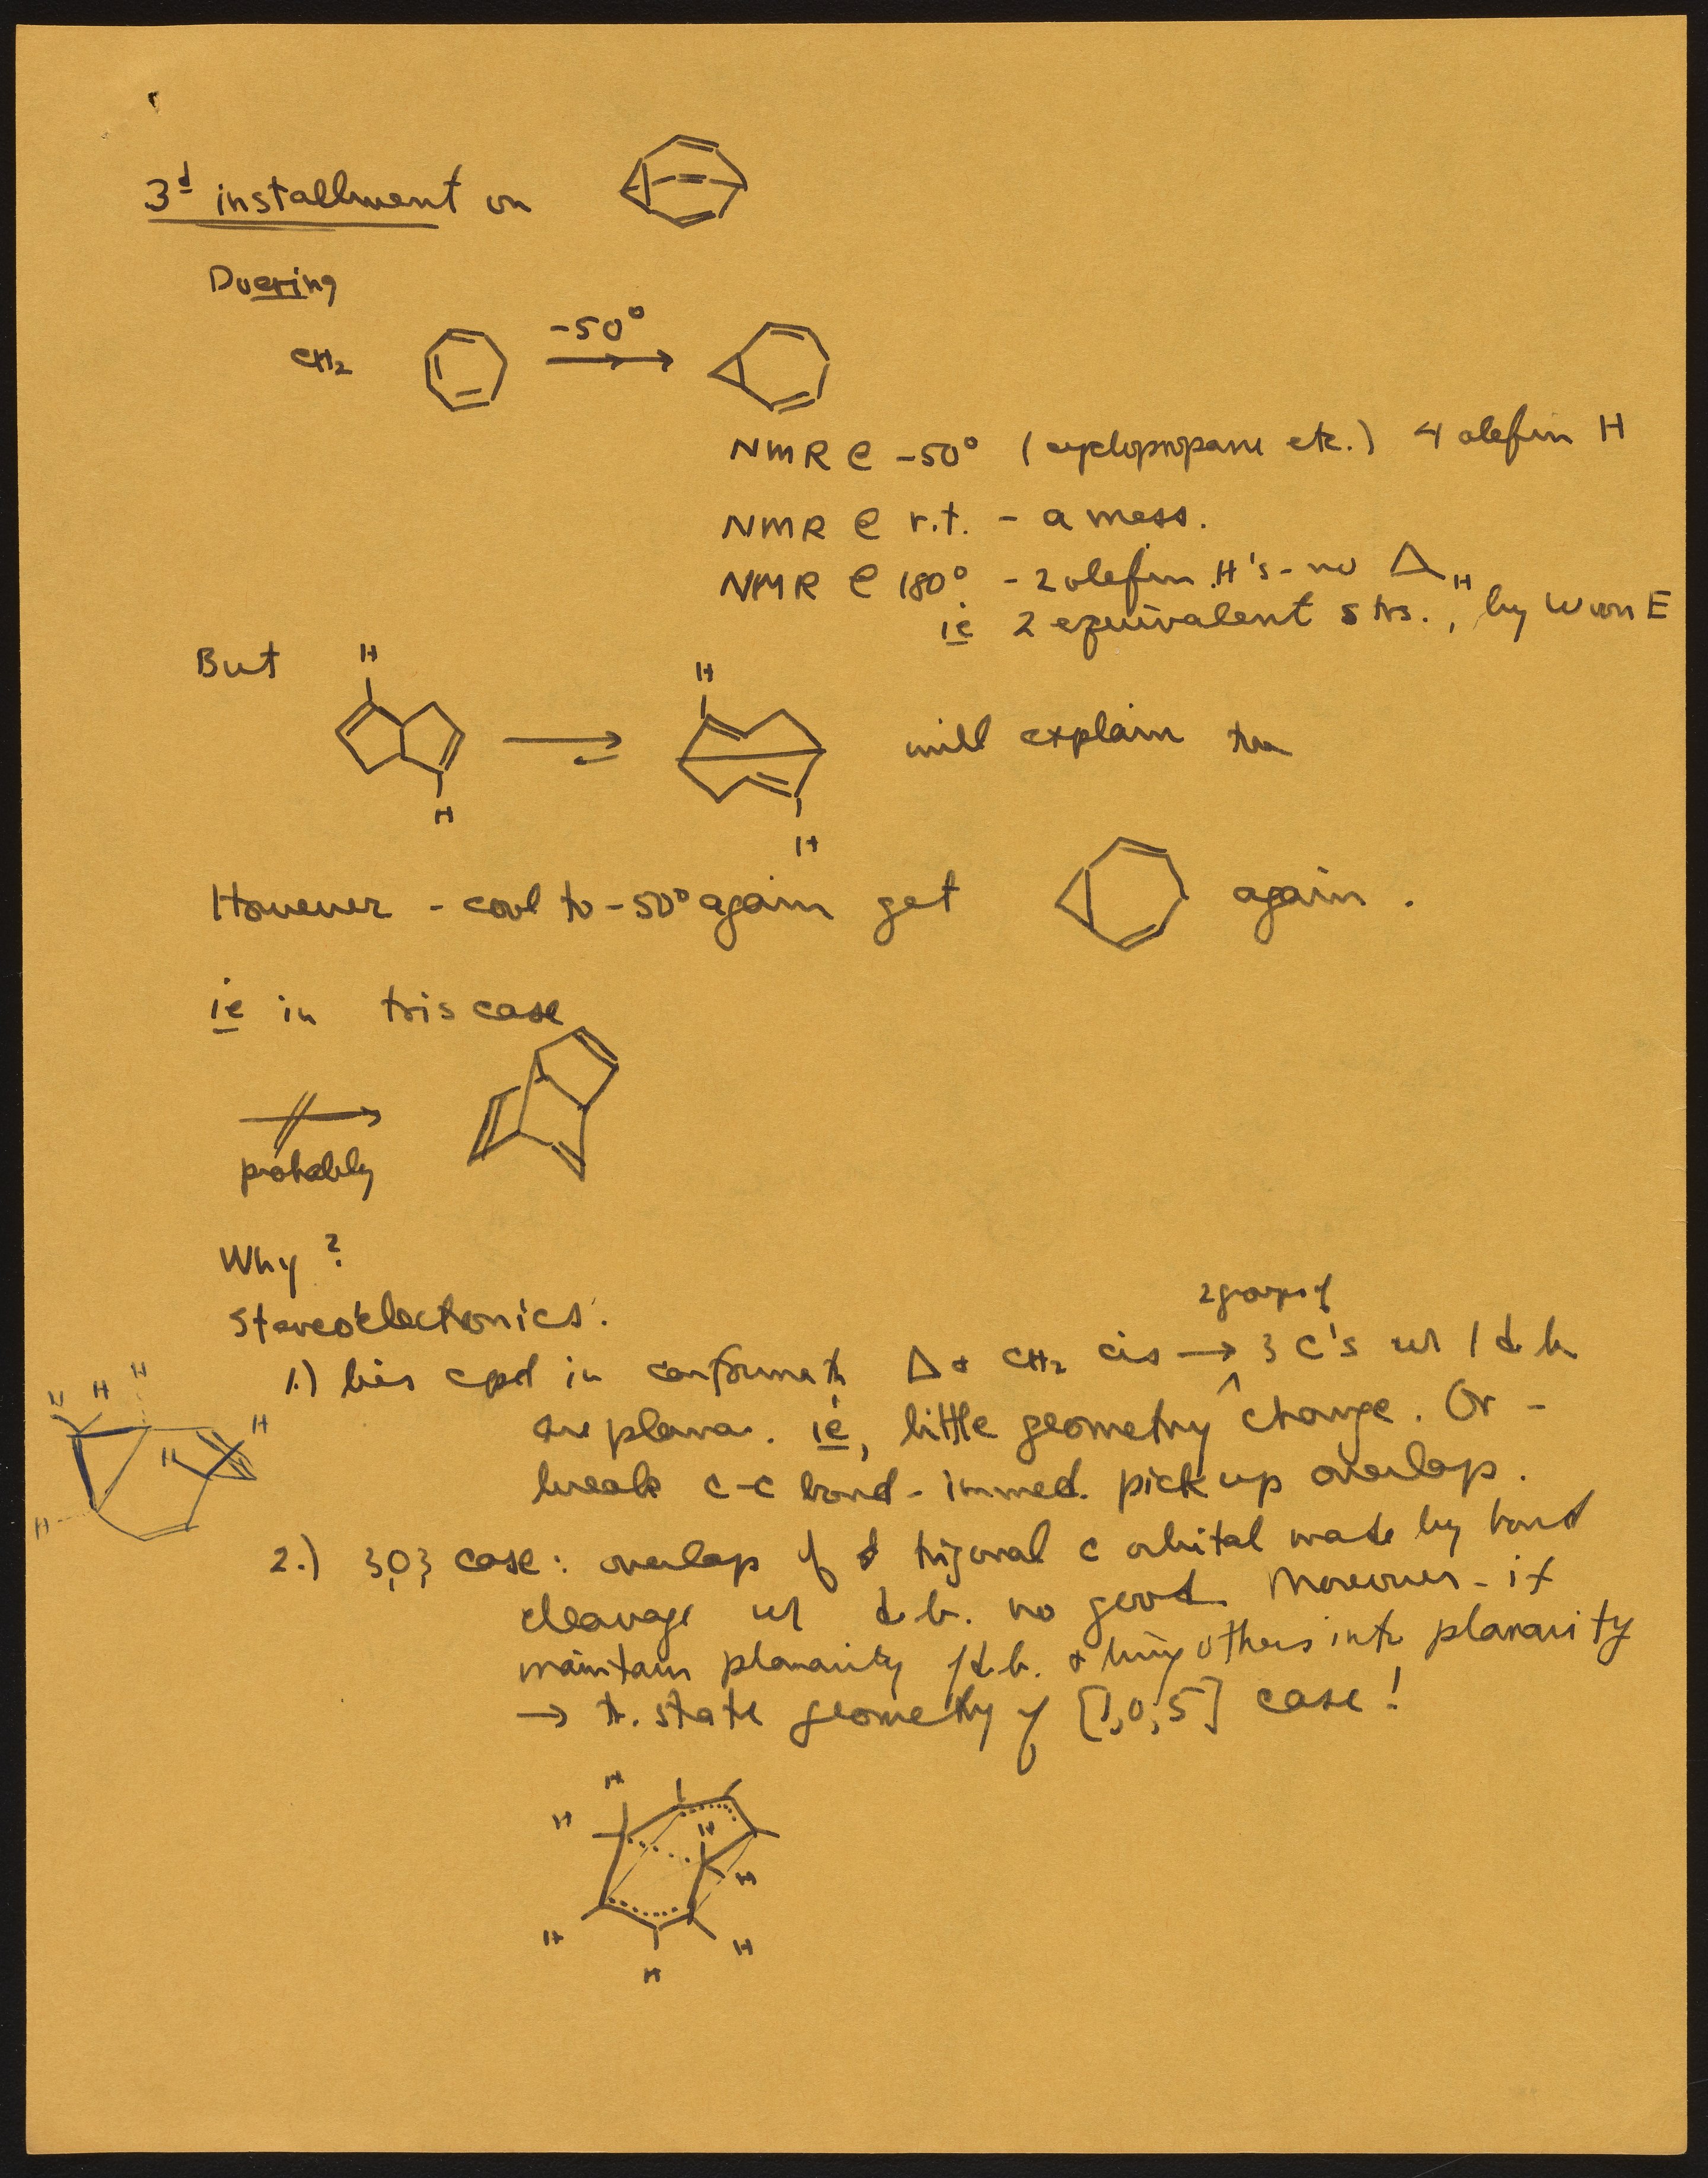 3d installment on
Doering
CH2 -50°
NMR @ -50° (cyclopropane etc.) 4 olefin H
NMR @ r.t. - a mess.
NMR @ 180° - 2 olefin H's - no Δ H
ie 2 equivalent strs., by W von E
But H H
will explain too
H H
However - cool to -50° again get again.
ie in tris case
probably
Why?
Stereoelectronics:
2 groups of
1.) bis cpd in conformath Δ & CH2 cis → 3 C's w/ 1 d.b.
are planar. ie, little geometry ^ change. Or -
break C-C bond - immed. pick up overlap.
H H H H H H
2.) 3,0,3 case: overlap of trigonal C orbital made by bond
cleavage w/ d.b. no good. Moreover - if
maintain planarity 1 d.b. & bring others into planarity
→ tr. state geometry of [1,0,5] case!
H H H H H H H